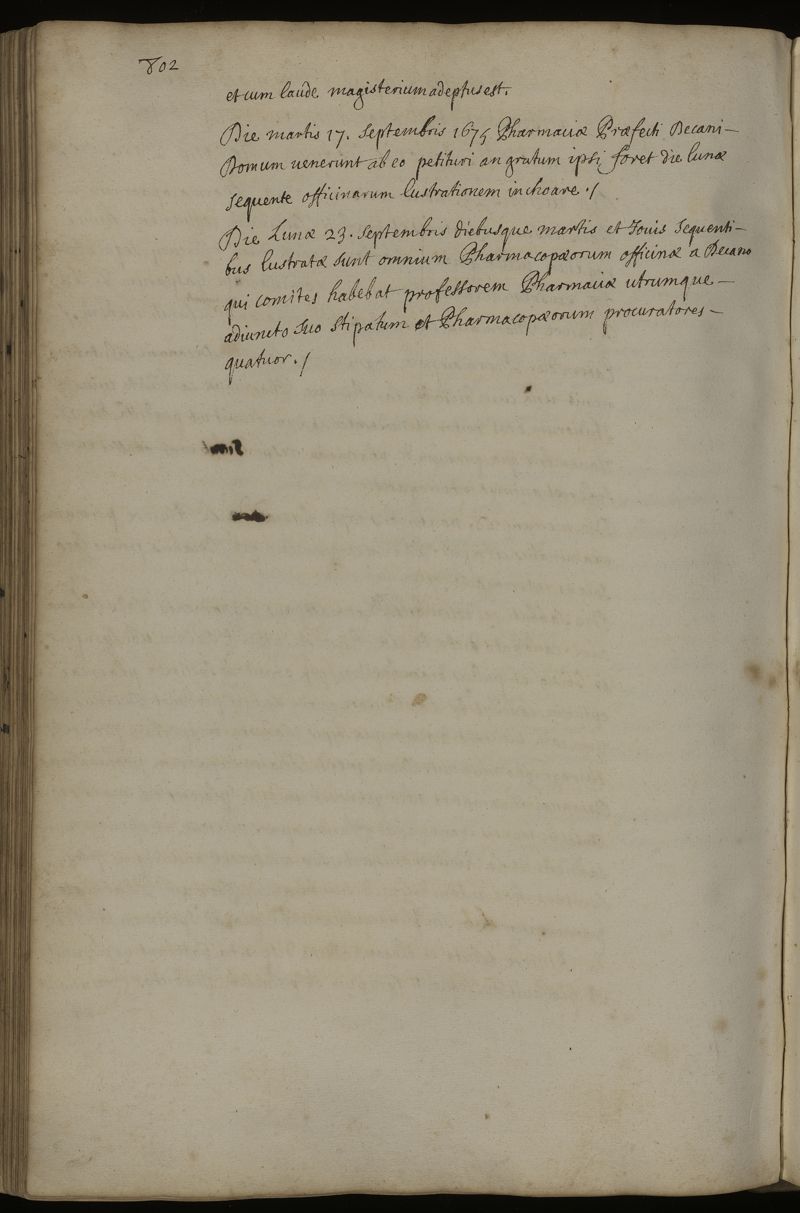 802
et cum laude magisterium adeptus est.
Die martis 17. Septembris 1675 Pharmaciæ Præfecti Decani –
Domum uenerunt ab eo petituri an gratum ipsi foret die lunæ
sequente officinarum lustrationem inchoare ./
Die Lunæ 23. Septembris diebusque martis et Iouis Sequenti–
bus lustratæ sunt omnium Pharmacopæorum officinæ a Decano
qui comites habebat professorem Pharmaciæ utrumque –
adiuncto suo stipatum et Pharmacopæorum procuratores –
quatuor ./